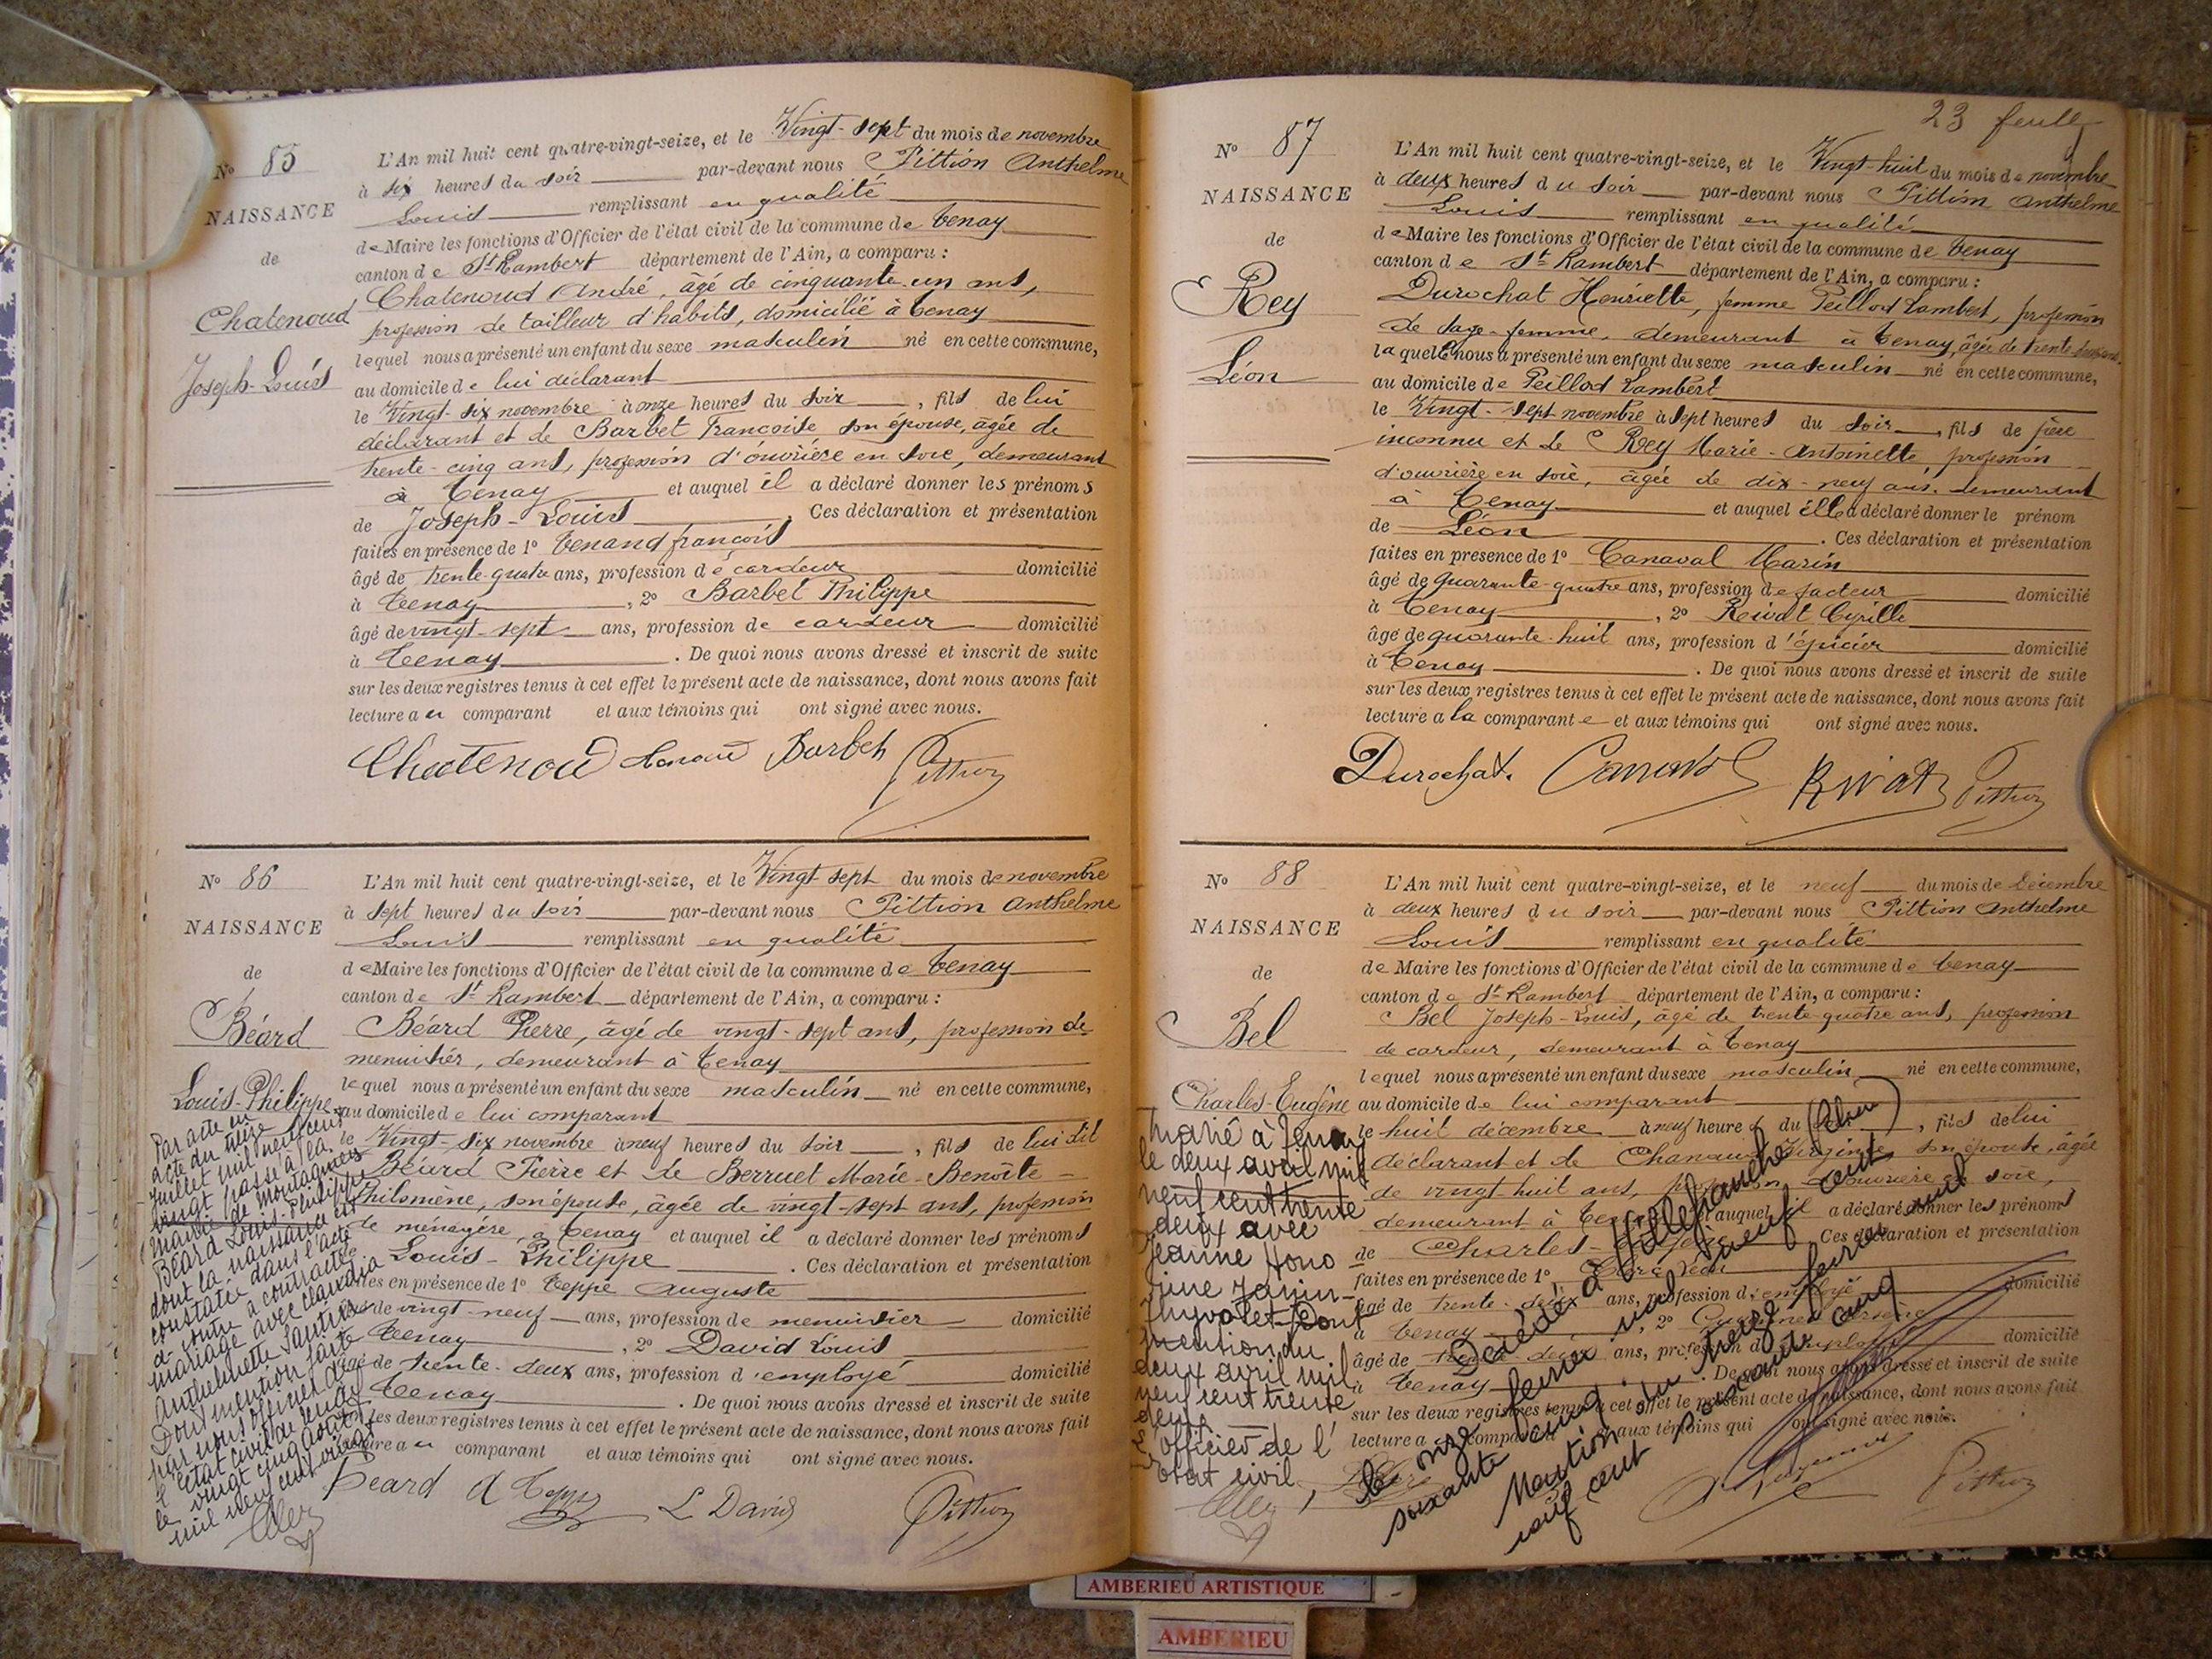 Nº 85
NAISSANCE
de
Chatenoud
Joseph-Louis
L'An mil huit cent quatre-vingt-seize, et le Vingt-sept du mois de novembre
à six heures du soir par-devant nous Pittion Anthelme
Louis remplissant en qualité
de Maire les fonctions d'Officier de l'état civil de la commune de Tenay
canton de St Rambert département de l'Ain, a comparu :
Chatenoud André, âgé de cinquante-un ans,
profession de tailleur d'habits, domicilié à Tenay
lequel nous a présenté un enfant du sexe masculin né en cette commune,
au domicile de lui déclarant
le Vingt-six novembre à onze heures du soir, fils de lui
déclarant et de Barbet Françoise son épouse, âgée de
trente-cinq ans, profession d'ouvrière en soie, demeurant
à Tenay et auquel il a déclaré donner les prénoms
de Joseph-Louis. Ces déclaration et présentation
faites en présence de 1º Tenand françois
âgé de trente-quatre ans, profession de cardeur domicilié
à Tenay, 2º Barbet Philippe
âgé de vingt-sept ans, profession de cardeur domicilié
à Tenay. De quoi nous avons dressé et inscrit de suite
sur les deux registres tenus à cet effet le présent acte de naissance, dont nous avons fait
lecture au comparant et aux témoins qui ont signé avec nous.
Chatenoud Barbet Pittion
Nº 86
NAISSANCE
de
Béard
Louis-Philippe
L'An mil huit cent quatre-vingt-seize, et le Vingt-sept du mois de novembre
à sept heures du soir par-devant nous Pittion Anthelme
Louis remplissant en qualité
de Maire les fonctions d'Officier de l'état civil de la commune de Tenay
canton de St Rambert département de l'Ain, a comparu :
Béard Pierre, âgé de vingt-sept ans, profession de
menuisier, demeurant à Tenay
lequel nous a présenté un enfant du sexe masculin né en cette commune,
au domicile de lui comparant
le Vingt-six novembre à neuf heures du soir, fils de lui dit
Béard Pierre et de Berruet Marie-Benoîte-
Philomène, son épouse, âgée de vingt-sept ans, profession
de ménagère, à Tenay et auquel il a déclaré donner les prénoms
Louis-Philippe. Ces déclaration et présentation
faites en présence de 1º Teppe Auguste
âgé de vingt-neuf ans, profession de menuisier domicilié
Tenay, 2º David Louis
âgé de trente-deux ans, profession d'employé domicilié
Tenay. De quoi nous avons dressé et inscrit de suite
les deux registres tenus à cet effet le présent acte de naissance, dont nous avons fait
lecture au comparant et aux témoins qui ont signé avec nous.
Par acte en
date du treize
juillet mil neuf cent
vingt passé à la
Mairie de Montagnieu
Béard Louis-Philippe
dont la naissance est
constatée dans l'acte
ci-contre a contracté
mariage avec Claudia
Anthelmette
Dont mention faite
par nous officier de
l'état civil de Tenay
le vingt cinq août
mil neuf cent vingt
Beard A Teppe L David Pittion
23 feuill
Nº 87
NAISSANCE
de
Rey
Léon
L'An mil huit cent quatre-vingt-seize, et le Vingt-huit du mois de novembre
à deux heures du soir par-devant nous Pittion Anthelme
Louis remplissant en qualité
de Maire les fonctions d'Officier de l'état civil de la commune de Tenay
canton de St Rambert département de l'Ain, a comparu :
Durochat Henriette, femme Peillod Lambert, profession
de sage-femme, demeurant à Tenay, âgée de trente
laquelle nous a présenté un enfant du sexe masculin né en cette commune,
au domicile de Peillod Lambert
le Vingt-sept novembre à sept heures du soir, fils de père
inconnu et de Rey Marie-Antoinette profession
d'ouvrière en soie, âgée de dix-neuf ans, demeurant
à Tenay et auquel elle a déclaré donner le prénom
de Léon. Ces déclaration et présentation
faites en présence de 1º Canaval Marin
âgé de quarante-quatre ans, profession de facteur domicilié
à Tenay, 2º Rivat Cyrille
âgé de quarante-huit ans, profession d'épicier domicilié
à Tenay. De quoi nous avons dressé et inscrit de suite
sur les deux registres tenus à cet effet le présent acte de naissance, dont nous avons fait
lecture a la comparante et aux témoins qui ont signé avec nous.
Durochat. Canaval Rivat Pittion
Nº 88
NAISSANCE
de
Bel
Charles-Eugène
L'An mil huit cent quatre-vingt-seize, et le neuf du mois de décembre
à deux heures du soir par-devant nous Pittion Anthelme
Louis remplissant en qualité
de Maire les fonctions d'Officier de l'état civil de la commune de Tenay
canton de St Rambert département de l'Ain, a comparu :
Bel Joseph-Louis, âgé de trente-quatre ans, profession
de cardeur, demeurant à Tenay
lequel nous a présenté un enfant du sexe masculin né en cette commune,
au domicile de lui comparant
le huit décembre à neuf heures du, fils de lui
déclarant et de Virginie son épouse, âgée
de vingt-huit ans, profession d'ouvrière en soie,
demeurant à Tenay et auquel il a déclaré donner les prénoms
de Charles-Eugène. Ces déclaration et présentation
faites en présence de 1º
âgé de trente-deux ans, profession d'employé domicilié
à Tenay, 2º
âgé de trente-deux ans, profession d'employé domicilié
à Tenay. De quoi nous avons dressé et inscrit de suite
sur les deux registres tenus à cet effet le présent acte de naissance, dont nous avons fait
lecture au comparant et aux témoins qui ont signé avec nous.
Marié à Tenay
le deux avril mil
neuf cent trente
deux avec
Jeanne Hono
rine Janin-
Thyvolet-Dont
mention du
deux avril mil
neuf cent trente
deux
L'officier de l'
état civil,
Décédé à Villefranche (Rhône)
le onze février mil neuf cent
soixante cinq.
Mention du treize février mil
neuf cent soixante cinq
Pittion
AMBERIEU ARTISTIQUE
AMBERIEU